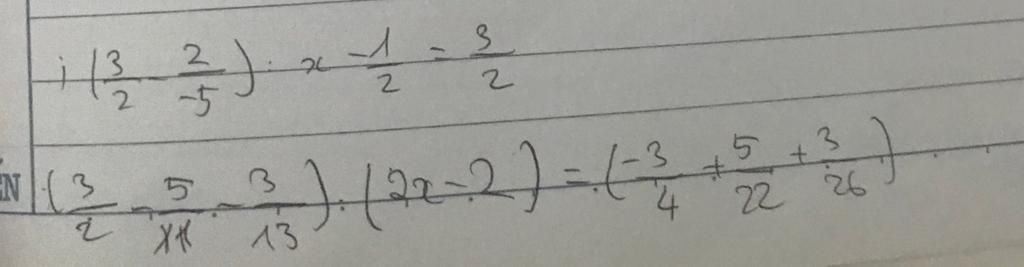 i (3/2 - 2/-5) . x - 1/2 = 3/2
ẾN (3/2 - 5/11 - 3/13) . (2x - 2) = (-3/4 + 5/22 + 3/26)